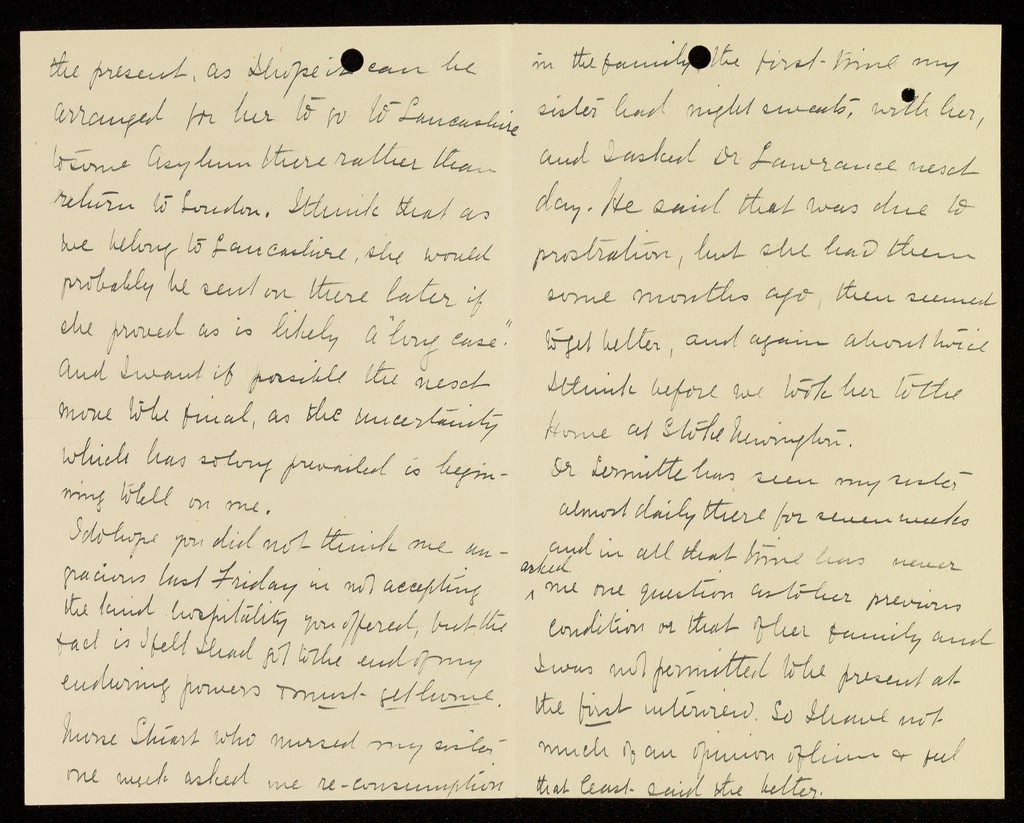 the present, as I hope it can be
arranged for her to go to Lancashire
to some Asylum there rather than
return to London. I think that as
we belong to Lancashire, she would
probably be sent on there later if
she proved as is likely a "long case".
And I want if possible the next
move to be final, as the uncertainty
which has so long prevailed is begin-
ning to tell on me.
I do hope you did not think me un-
gracious last Friday in not accepting
the kind hospitality you offered, but the
fact is I felt I had got to the end of my
enduring powers & must get home.
Nurse Stuart who nursed my sister
one week asked me re-consumption
in the family the first time my
sister had night sweats, with her,
and I asked Dr Lawrance next
day. He said that was due to
prostration, but she had them
some months ago, then seemed
to get better, and again about twice
I think before we took her to the
Home at Stoke Newington.
Dr Dermitte has seen my sister
almost daily there for seven weeks
and in all that time has never
asked
me one question as to her previous
condition or that of her family and
I was not permitted to be present at
the first interview. So I have not
much of an opinion of him & feel
that least said the better.